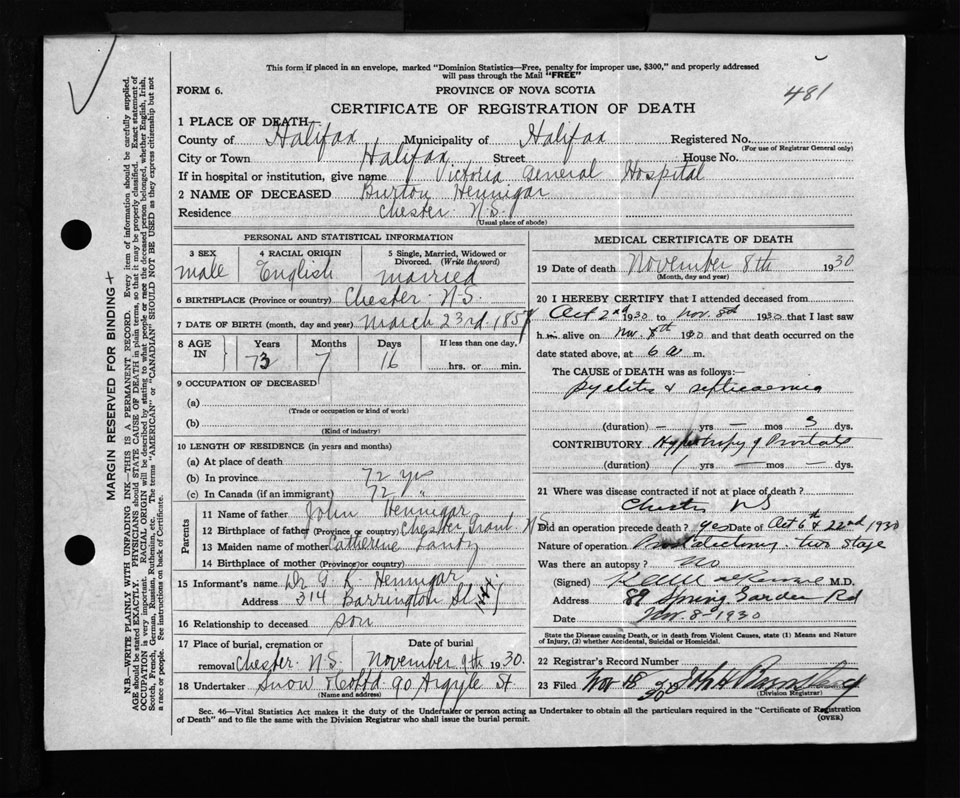 This form if placed in an envelope, marked "Dominion Statistics—Free, penalty for improper use, $300," and properly addressed
will pass through the Mail "FREE"
FORM 6.
PROVINCE OF NOVA SCOTIA
481
CERTIFICATE OF REGISTRATION OF DEATH
1 PLACE OF DEATH
County of Halifax Municipality of Halifax Registered No.
(For use of Registrar General only)
City or Town Halifax Street House No.
If in hospital or institution, give name Victoria General Hospital
2 NAME OF DECEASED Burton Hennigar
Residence Chester N.S.
(Usual place of abode)
PERSONAL AND STATISTICAL INFORMATION
3 SEX 4 RACIAL ORIGIN 5 Single, Married, Widowed or
Divorced. (Write the word)
male English married
6 BIRTHPLACE (Province or country) Chester N.S.
7 DATE OF BIRTH (month, day, and year) March 23rd. 1857
8 AGE IN Years Months Days If less than one day,
73 7 16 hrs. or min.
9 OCCUPATION OF DECEASED
(a)
(Trade or occupation or kind of work)
(b)
(Kind of industry)
10 LENGTH OF RESIDENCE (in years and months)
(a) At place of death
(b) In province 72 yrs
(c) In Canada (if an immigrant) 72 "
Parents
11 Name of father John Hennigar
12 Birthplace of father (Province or country) Chester Grant N.S.
13 Maiden name of mother Catherine
14 Birthplace of mother (Province or country)
15 Informant's name Dr G. R. Hennigar
Address 314 Barrington St
16 Relationship to deceased son
17 Place of burial, cremation or Date of burial
removal Chester N.S. November 9th 1930.
18 Undertaker Snow & Co Ltd 90 Argyle St
(Name and address)
MEDICAL CERTIFICATE OF DEATH
19 Date of death November 8th 1930
(Month, day and year)
20 I HEREBY CERTIFY that I attended deceased from
Oct 2nd 1930 to Nov. 8th 1930 that I last saw
him alive on Nov. 8th 1930 and that death occurred on the
date stated above, at 6 a m.
The CAUSE of DEATH was as follows:—
pyelitis & septicaemia
(duration) — yrs — mos 3 dys.
CONTRIBUTORY Hypertrophy of Prostate
(duration) 1 yrs — mos — dys.
21 Where was disease contracted if not at place of death?
Chester NS
Did an operation precede death? yes Date of Oct 6th & 22nd 1930
Nature of operation Prostatectomy - two stage
Was there an autopsy? No
(Signed) M.D.
Address 89 Spring Garden Rd
Date Nov. 8 - 1930
State the Disease causing Death, or in death from Violent Causes, state (1) Means and Nature
of Injury, (2) whether Accidental, Suicidal or Homicidal.
22 Registrar's Record Number
23 Filed Nov 18
(Division Registrar)
Sec. 46—Vital Statistics Act makes it the duty of the Undertaker or person acting as Undertaker to obtain all the particulars required in the "Certificate of Registration
of Death" and to file the same with the Division Registrar who shall issue the burial permit.
(OVER)
MARGIN RESERVED FOR BINDING
N.B.—WRITE PLAINLY WITH UNFADING INK—THIS IS A PERMANENT RECORD. Every item of information should be carefully supplied.
AGE should be stated EXACTLY. PHYSICIANS should STATE CAUSE OF DEATH in plain terms, so that it may be properly classified. Exact statement of
OCCUPATION is very important. RACIAL ORIGIN will be described by stating to what people or race the deceased person belonged, whether English, Irish,
Scotch, French, German, Russian, Ruthenian, etc. The terms "AMERICAN" or "CANADIAN" SHOULD NOT BE USED as they express citizenship but not
a race or people. See instructions on back of Certificate.